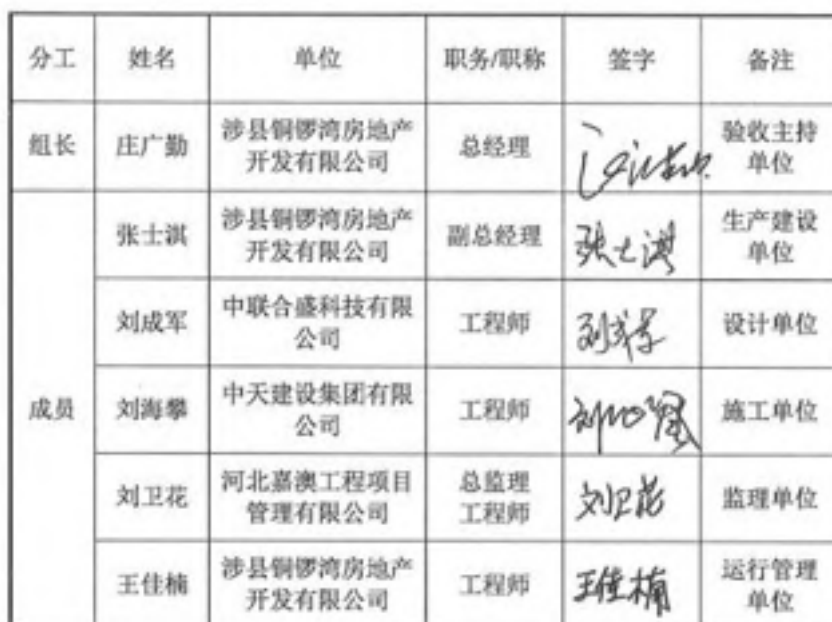 分工 姓名 单位 职务/职称 签字 备注
组长 庄广勤 涉县铜锣湾房地产开发有限公司 总经理 验收主持单位
成员 张士淇 涉县铜锣湾房地产开发有限公司 副总经理 张士淇 生产建设单位
刘成军 中联合盛科技有限公司 工程师 刘成军 设计单位
刘海攀 中天建设集团有限公司 工程师 刘海攀 施工单位
刘卫花 河北嘉澳工程项目管理有限公司 总监理工程师 刘卫花 监理单位
王佳楠 涉县铜锣湾房地产开发有限公司 工程师 王佳楠 运行管理单位